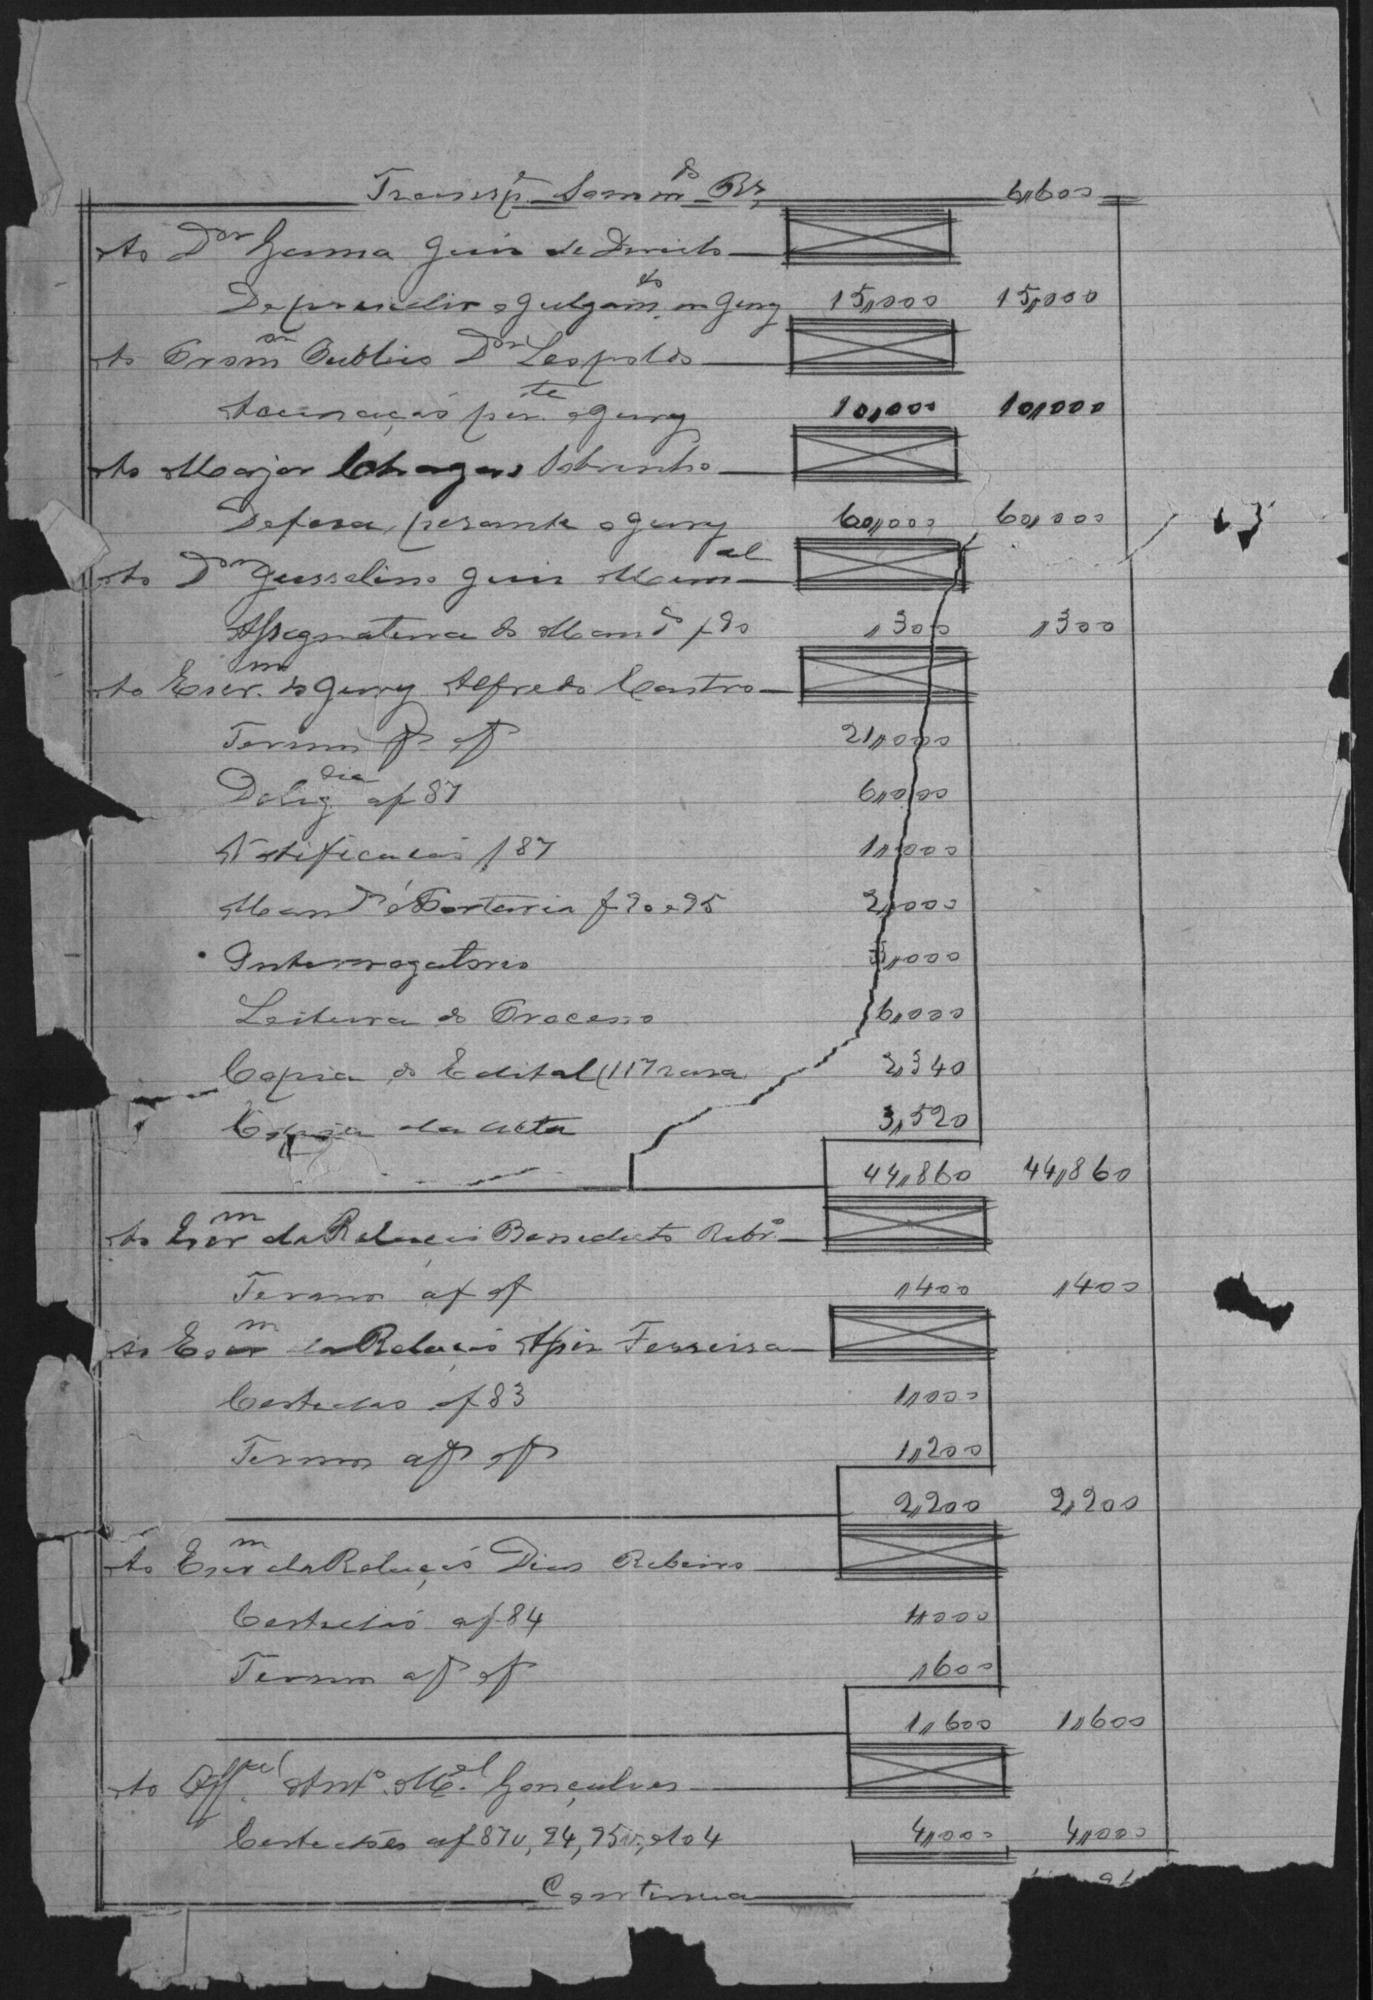 Transp.e Somm.do Rs 6,600
Ao Dor Gama Juiz de Direito
De presidir o julgam.to no Jury 15,000 15,000
Ao Prom.or Publico Dor Leopoldo
Accusação per.te o Jury 10,000 10,000
Ao Major Chagas Sobrinho
Defesa perante o Jury 60,000 60,000
Ao Dor Jusselino Juiz Mun.al
Assignatura do Mand.o f 90 ,300 ,300
Ao Escr.m do Jury Alfredo Castro
Termos f e f 21,000
Delig.cia a f 87 6,000
Notificação f 87 1,000
Mand.o e Portaria f 90 e 95 2,000
Interrogatorio ,000
Leitura do Processo 6,000
Copia do Edital (117 rasa 2,340
Copia da Acta 3,520
44,860 44,860
Ao Escr.m da Relação Benedicto Ribr.o
Termos a f e f ,400 ,400
Ao Escr.m da Relação Ferreira
Certidão a f 83 1,000
Termos a f e f 1,200
2,200 2,200
Ao Escr.m da Relação Dias Ribeiro
Certidão a f 84 1,000
Termos a f e f ,600
1,600 1,600
Ao Off.cial Ant.o M.el Gonçalves
Certidões a f 87v, 94, 95v, e 104 4,000 4,000
Continua